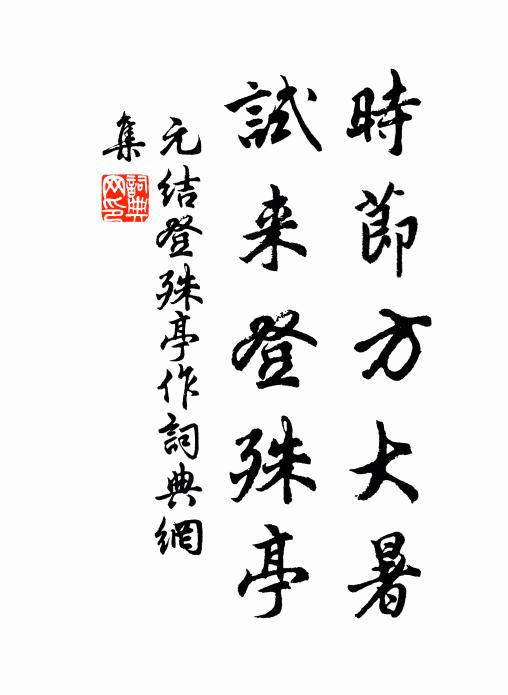 時節方大暑
試来登殊亭
元结登殊亭作詞典網
集
詞典
网印